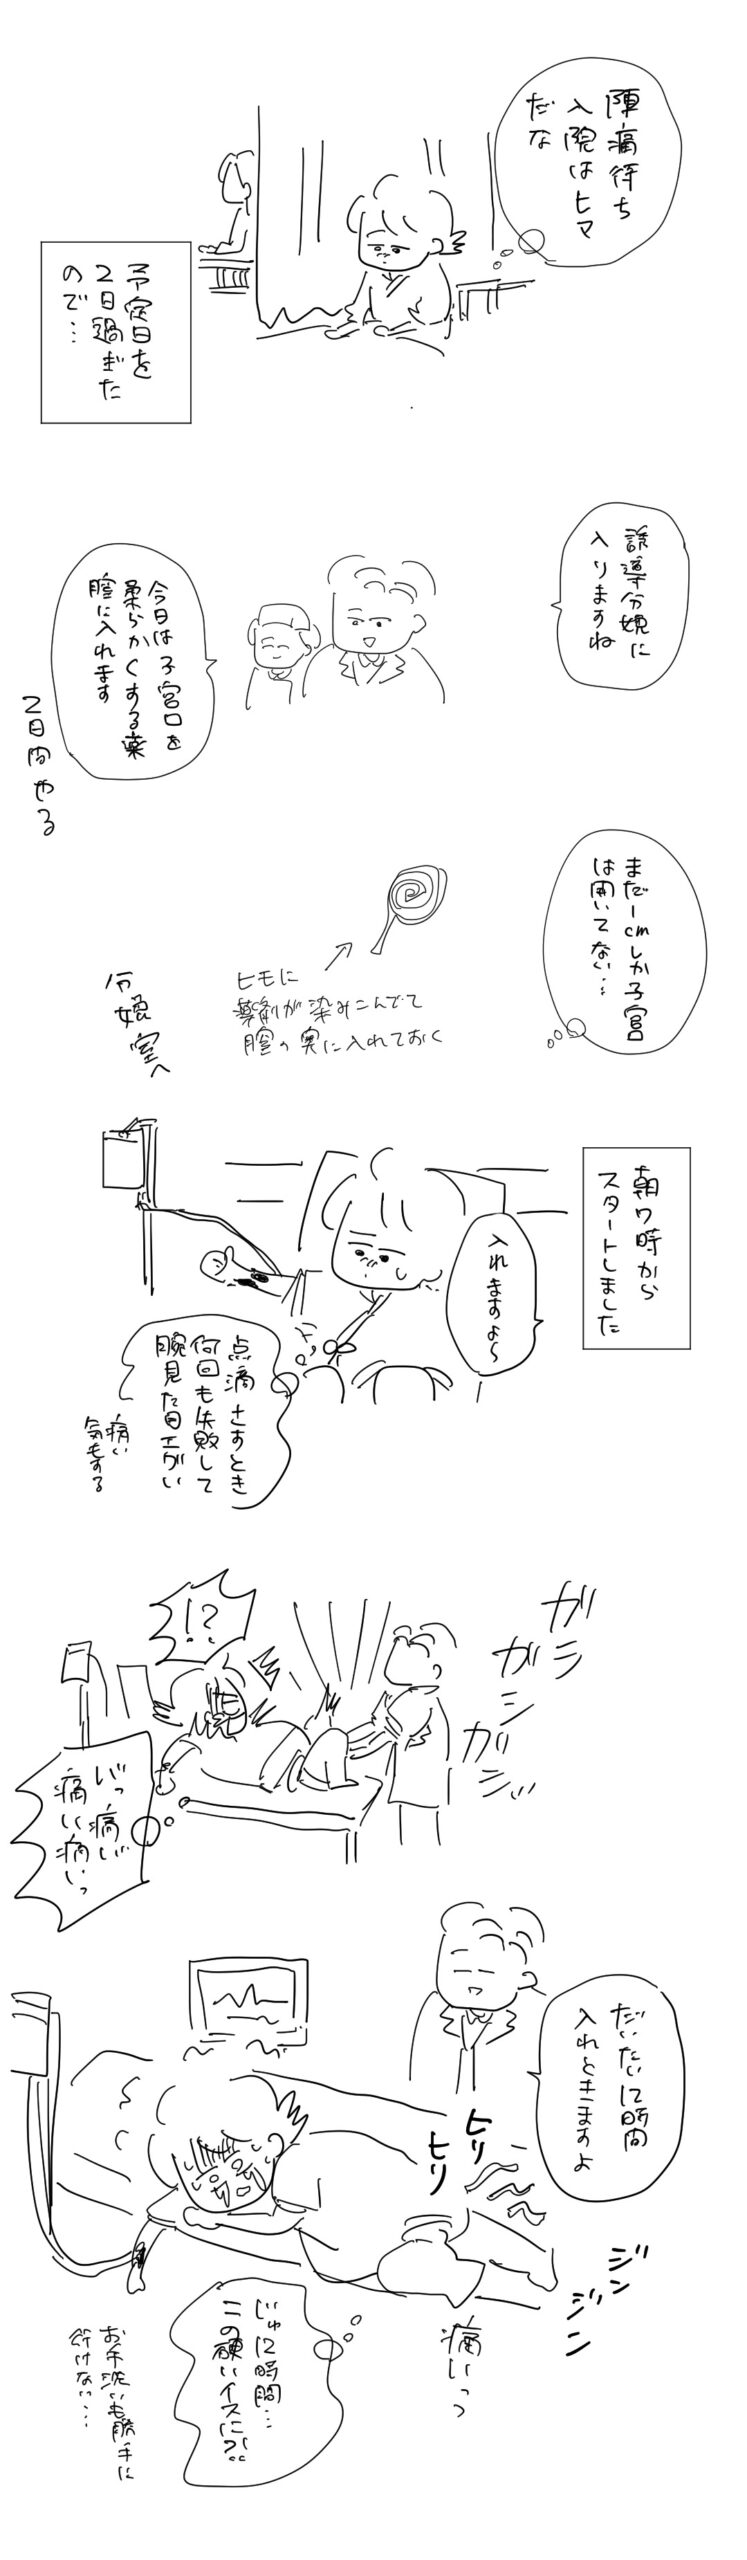 陣痛待ち
入院はヒマ
だな
予定日を
2日過ぎた
ので…
誘導分娩に
入りますね
今日は子宮口を
柔らかくする薬
膣に入れます
2日間やる
まだ1cmしか子宮
は開いてない…
ヒモに
薬剤が染みこんでて
膣の奥に入れておく
分娩室へ
朝7時から
スタートしました
入れますよ〜
点滴さすとき
何回も失敗して
腕見た目エグい
痛い
気もする
ガシ
ガシ
ガシ
!?
いっ痛い
痛い痛いっ
だいたい12時間
入れときますよ
ヒリ
ヒリ
ジン
ジン
痛いっっ
じゅ12時間…
この硬いイスに?!
お手洗いも勝手に
行けない…